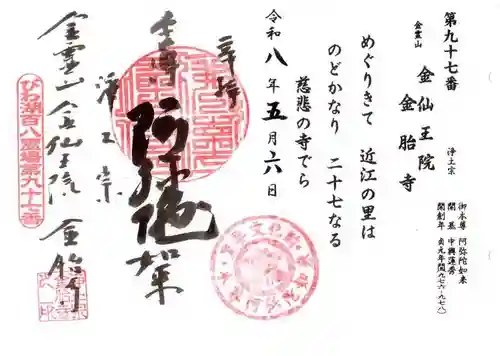 第九十七番
金霊山
金仙王院
浄土宗
金胎寺
御本尊 阿弥陀如来
開基 中興蓮秀
開創年 貞元年間(九七六-九七八)
めぐりきて 近江の里は
のどかなり 二十七なる
慈悲の寺でら
令和八年五月六日
奉拝
本尊
阿弥陀如来
浄土宗
金霊山 金仙王院 金胎寺
びわ湖百八霊場第九十七番